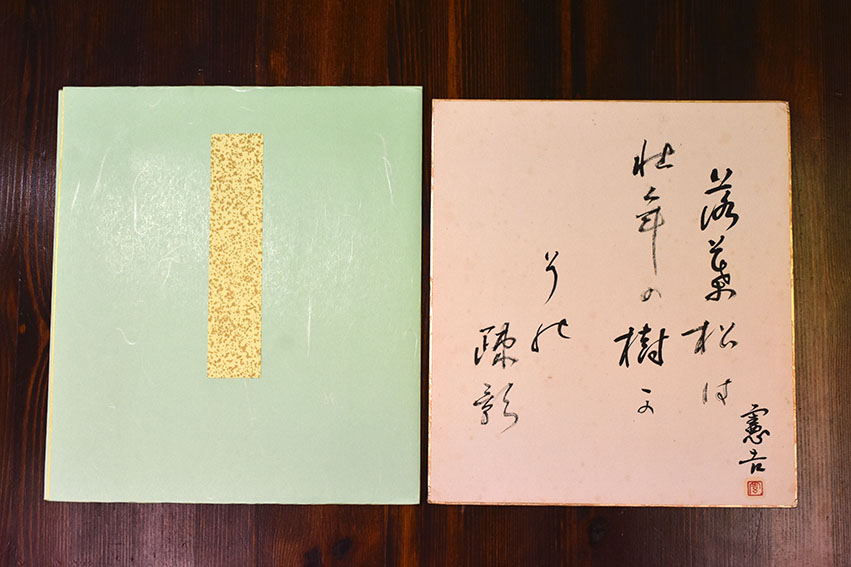 落葉松は
壮年の樹か
その
疎影
憲吉